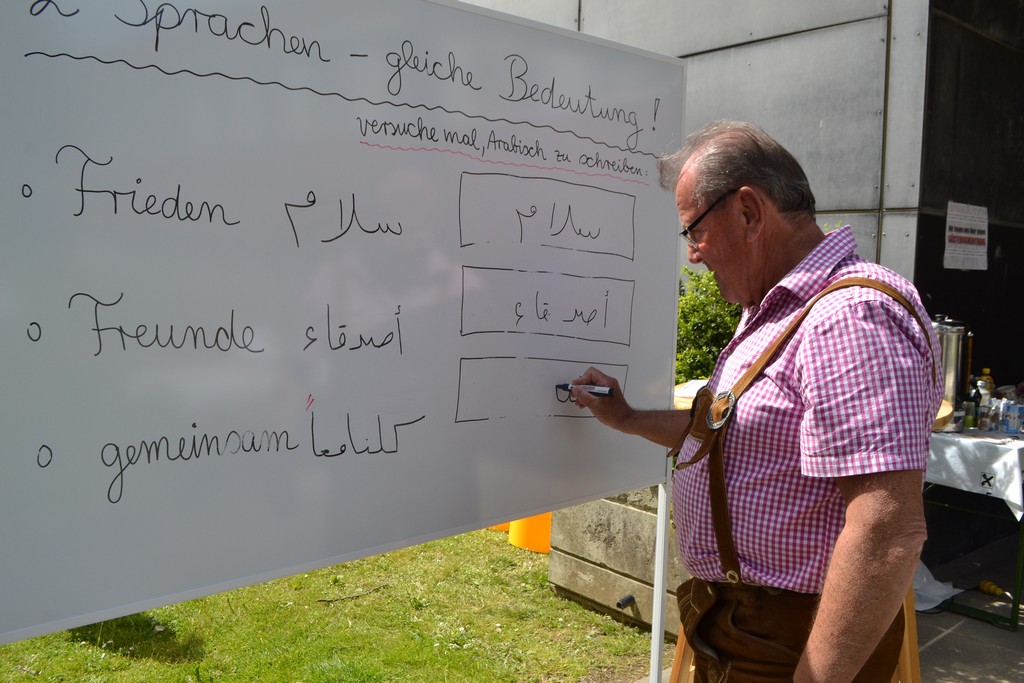 2 Sprachen – gleiche Bedeutung!
versuche mal, Arabisch zu schreiben:
Frieden سلام سلام
Freunde أصدقاء أصدقاء
gemeinsam كلنا معا